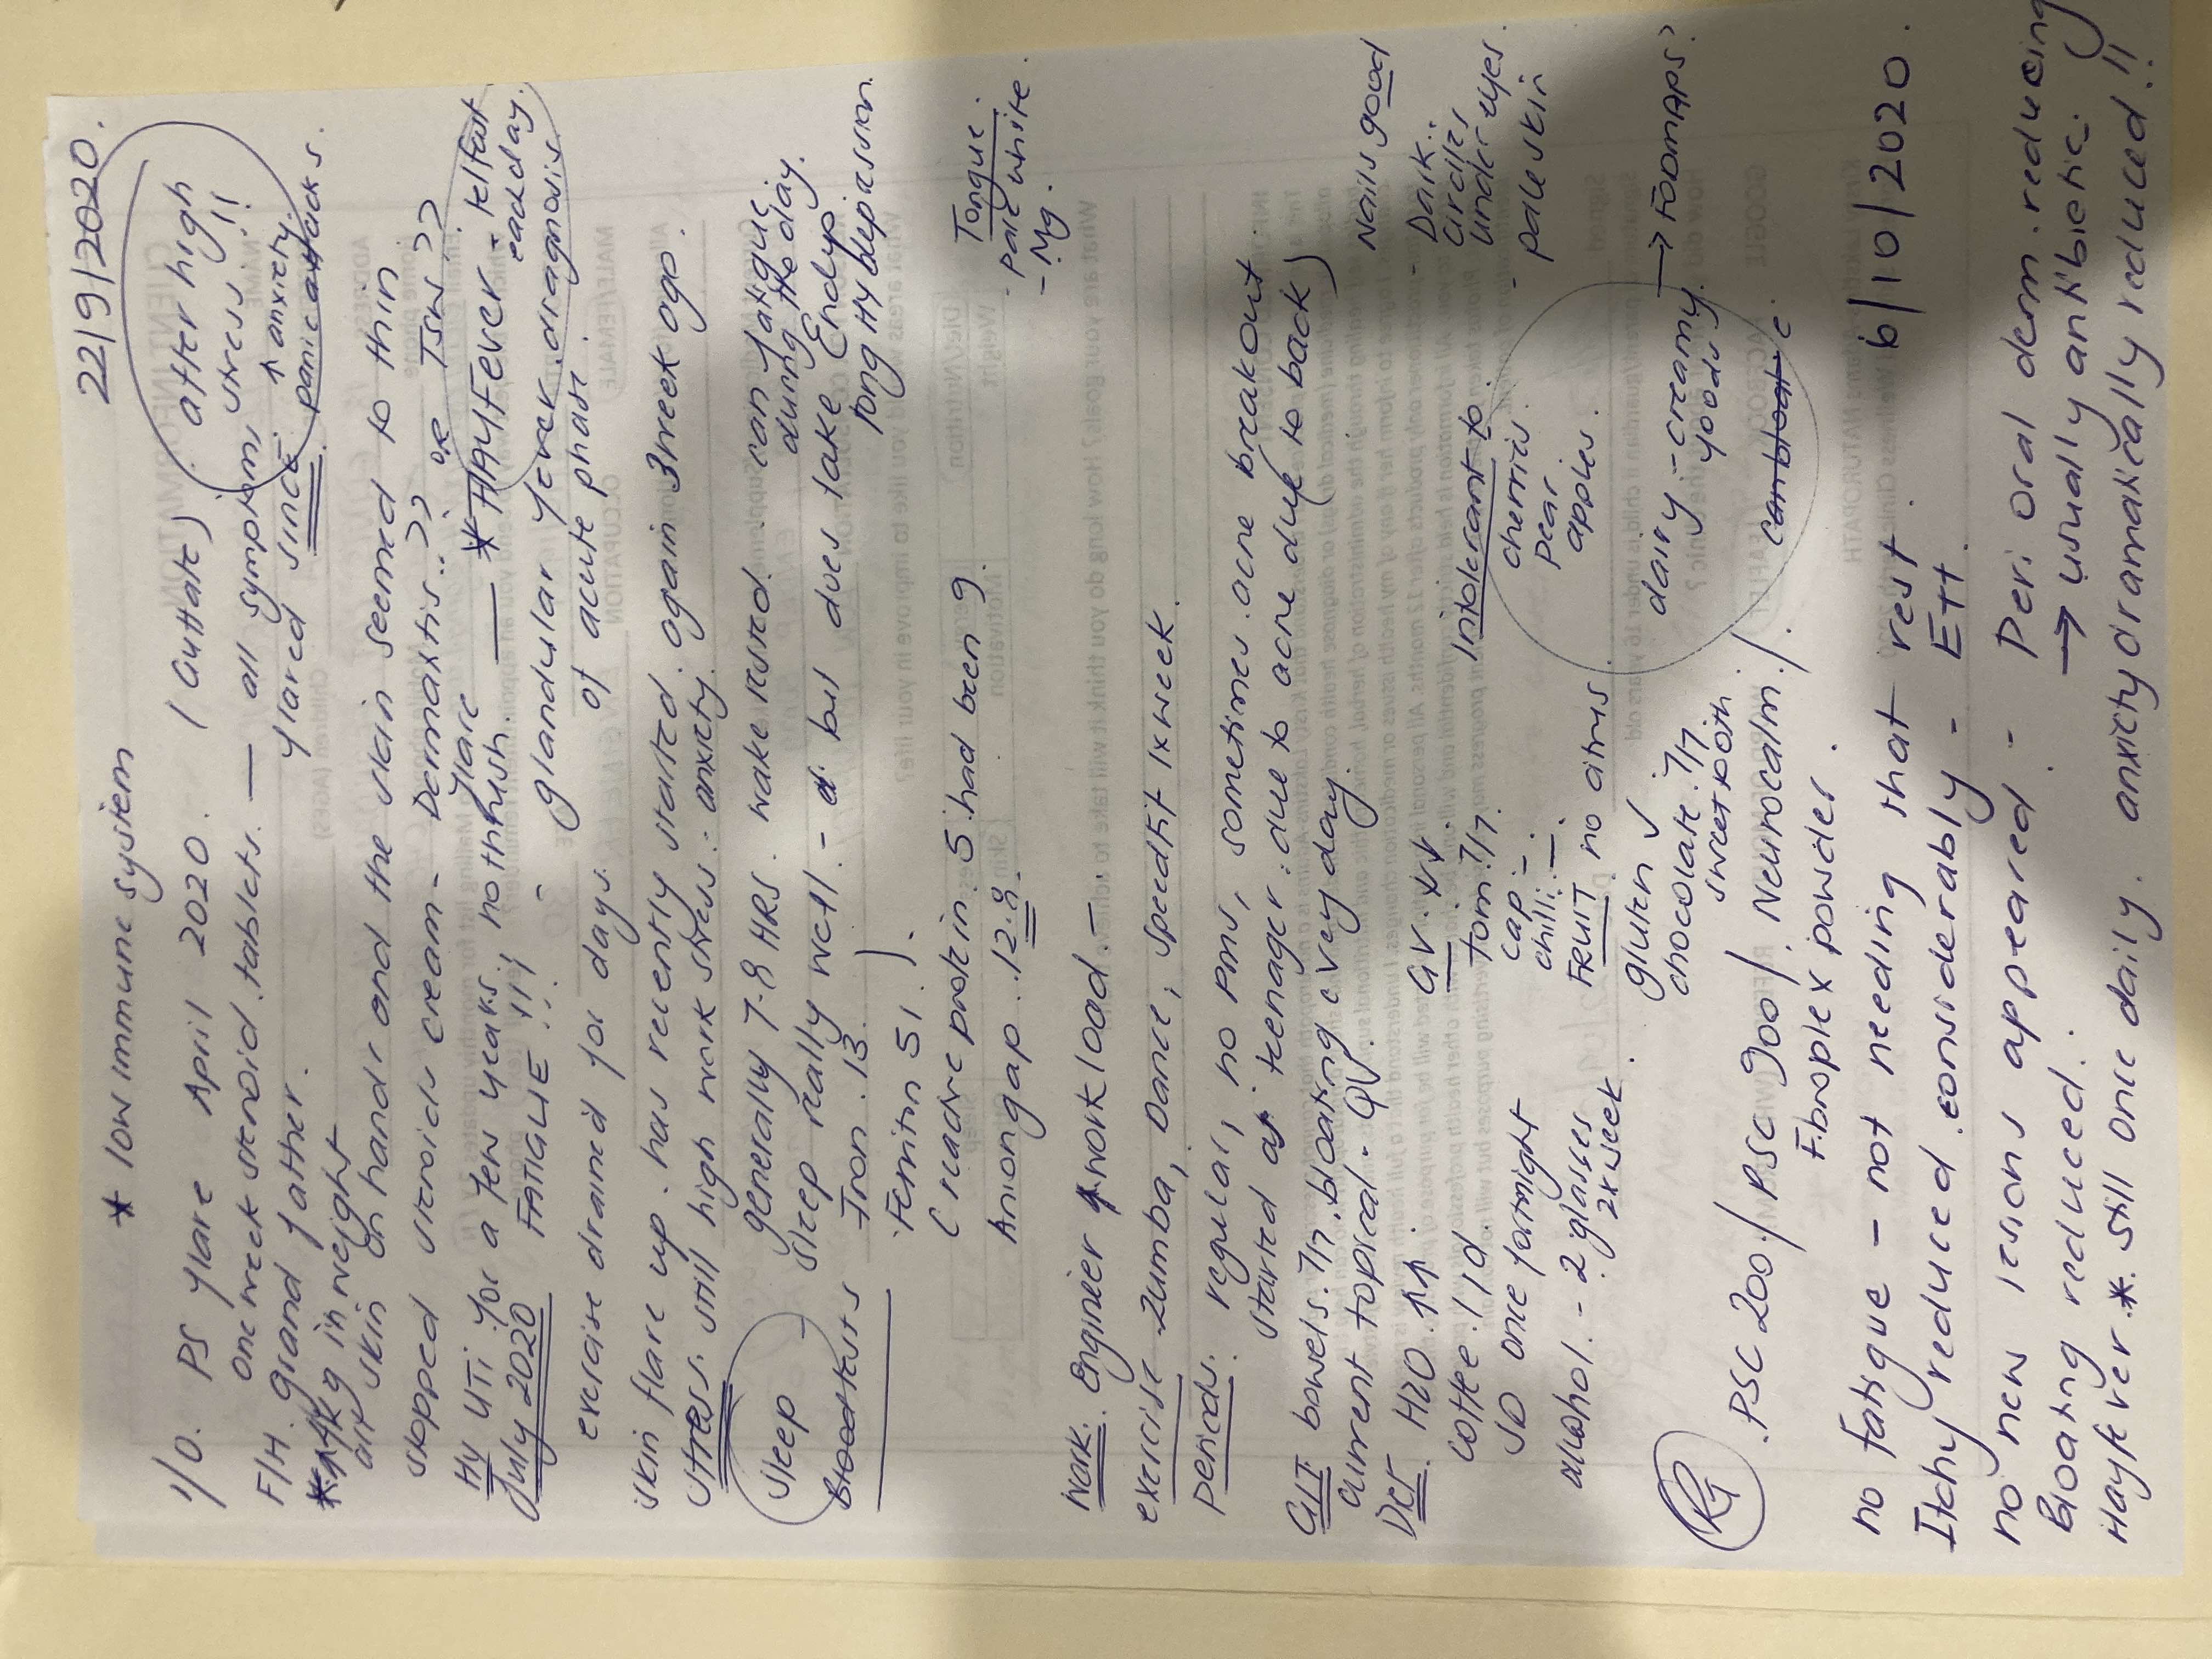 22/9/2020.
* low immune system
Y/O. PS flare April 2020. (Guttate) after high
one week steroid tablets. — all symptoms stress!!
F/H. Grand father. flared since. ↑ anxiety.
panic attacks.
in weight
skin on hands and the skin seemed to thin
stopped steroids cream - Dermatitis..?? or TSW??
flare
Hx UTI for a few years, no thrush. — * HAYFEVER - telfast
each day.
July 2020 FATIGUE !!! - glandular fever diagnosis
of acute phase.
exercise drained for days.
skin flare up. has recently started. again 3week ago.
stress. still high work stress. anxiety.
Sleep generally 7-8 HRS. wake rested. can fatigue
during the day.
sleep really well. - but does take Endep.
long Hx depression
Bloodtests Iron. 13.
Ferritin 51.
C reactve protein. 5. had been 9.
Anion gap. 12.8.
Tongue.
- pale white.
- Mg.
Work. Engineer ↑ workload. -
exercise Zumba, Dance, speedfit 1x week.
periods. regular, no pms, sometimes. acne breakout.
started as teenager. due to acne due to back)
GIT bowels. 7/7. bloating every day.
current topical - QV.
Diet H2O. ↑↑. GV. ↓↓. Intolerant to.
coffee. 1/d tom. 7/7. cherries.
SD once fortnight cap - pear
chilli. - apples.
alcohol. - 2 glasses FRUIT. no citrus
2x week.
gluten ✓ dairy - creamy → FODMAPS?
foods.
chocolate. 7/7
sweet tooth
Nails good
Dark..
circles
under eyes.
- pale skin
Rx PSC 200/ PSC 900/ Neurocalm./
Fibroplex powder.
6/10/2020.
no fatigue - not needing that rest.
Itchy reduced considerably - Ett.
no new lesions appeared - Peri oral derm. reducing
Bloating reduced. → usually antibiotic.
Hayfever *. still once daily. anxiety dramatically reduced!!